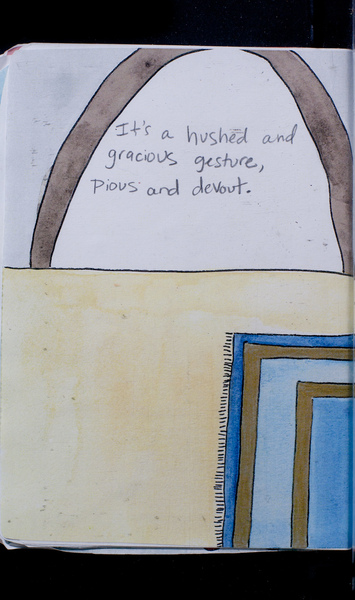 It's a hushed and
gracious gesture,
Pious and devout.